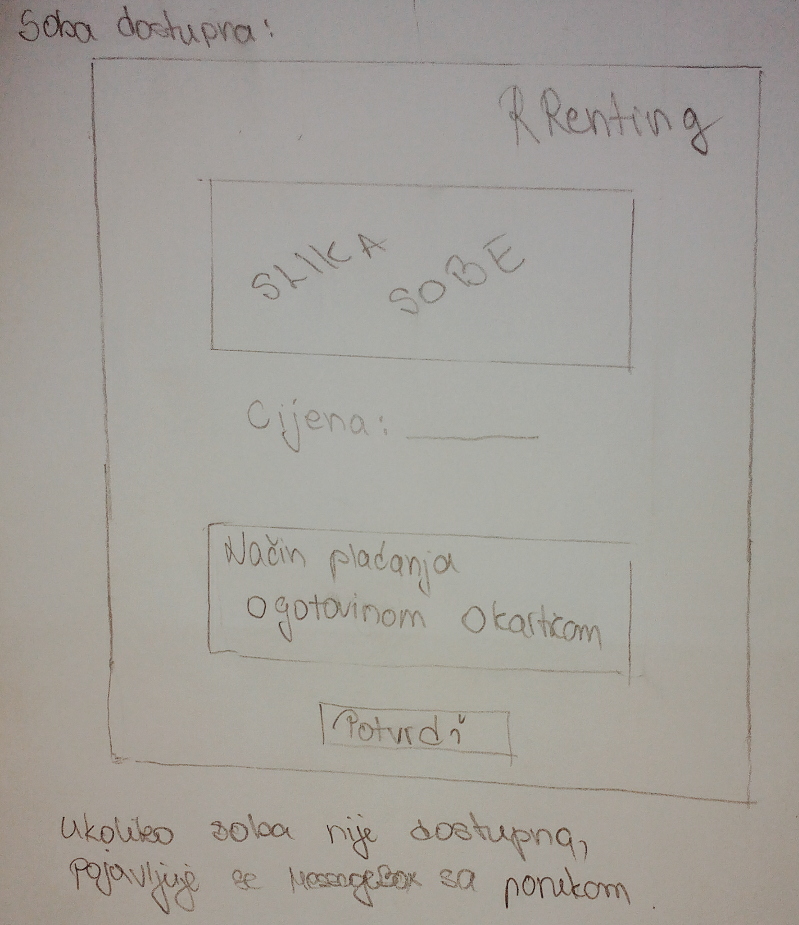 Soba dostupna:
RRenting
SLIKA
SOBE
Cijena: ______
Način plaćanja
O gotovinom O karticom
Potvrdi
Ukoliko soba nije dostupna,
pojavljuje se MessageBox sa porukom.